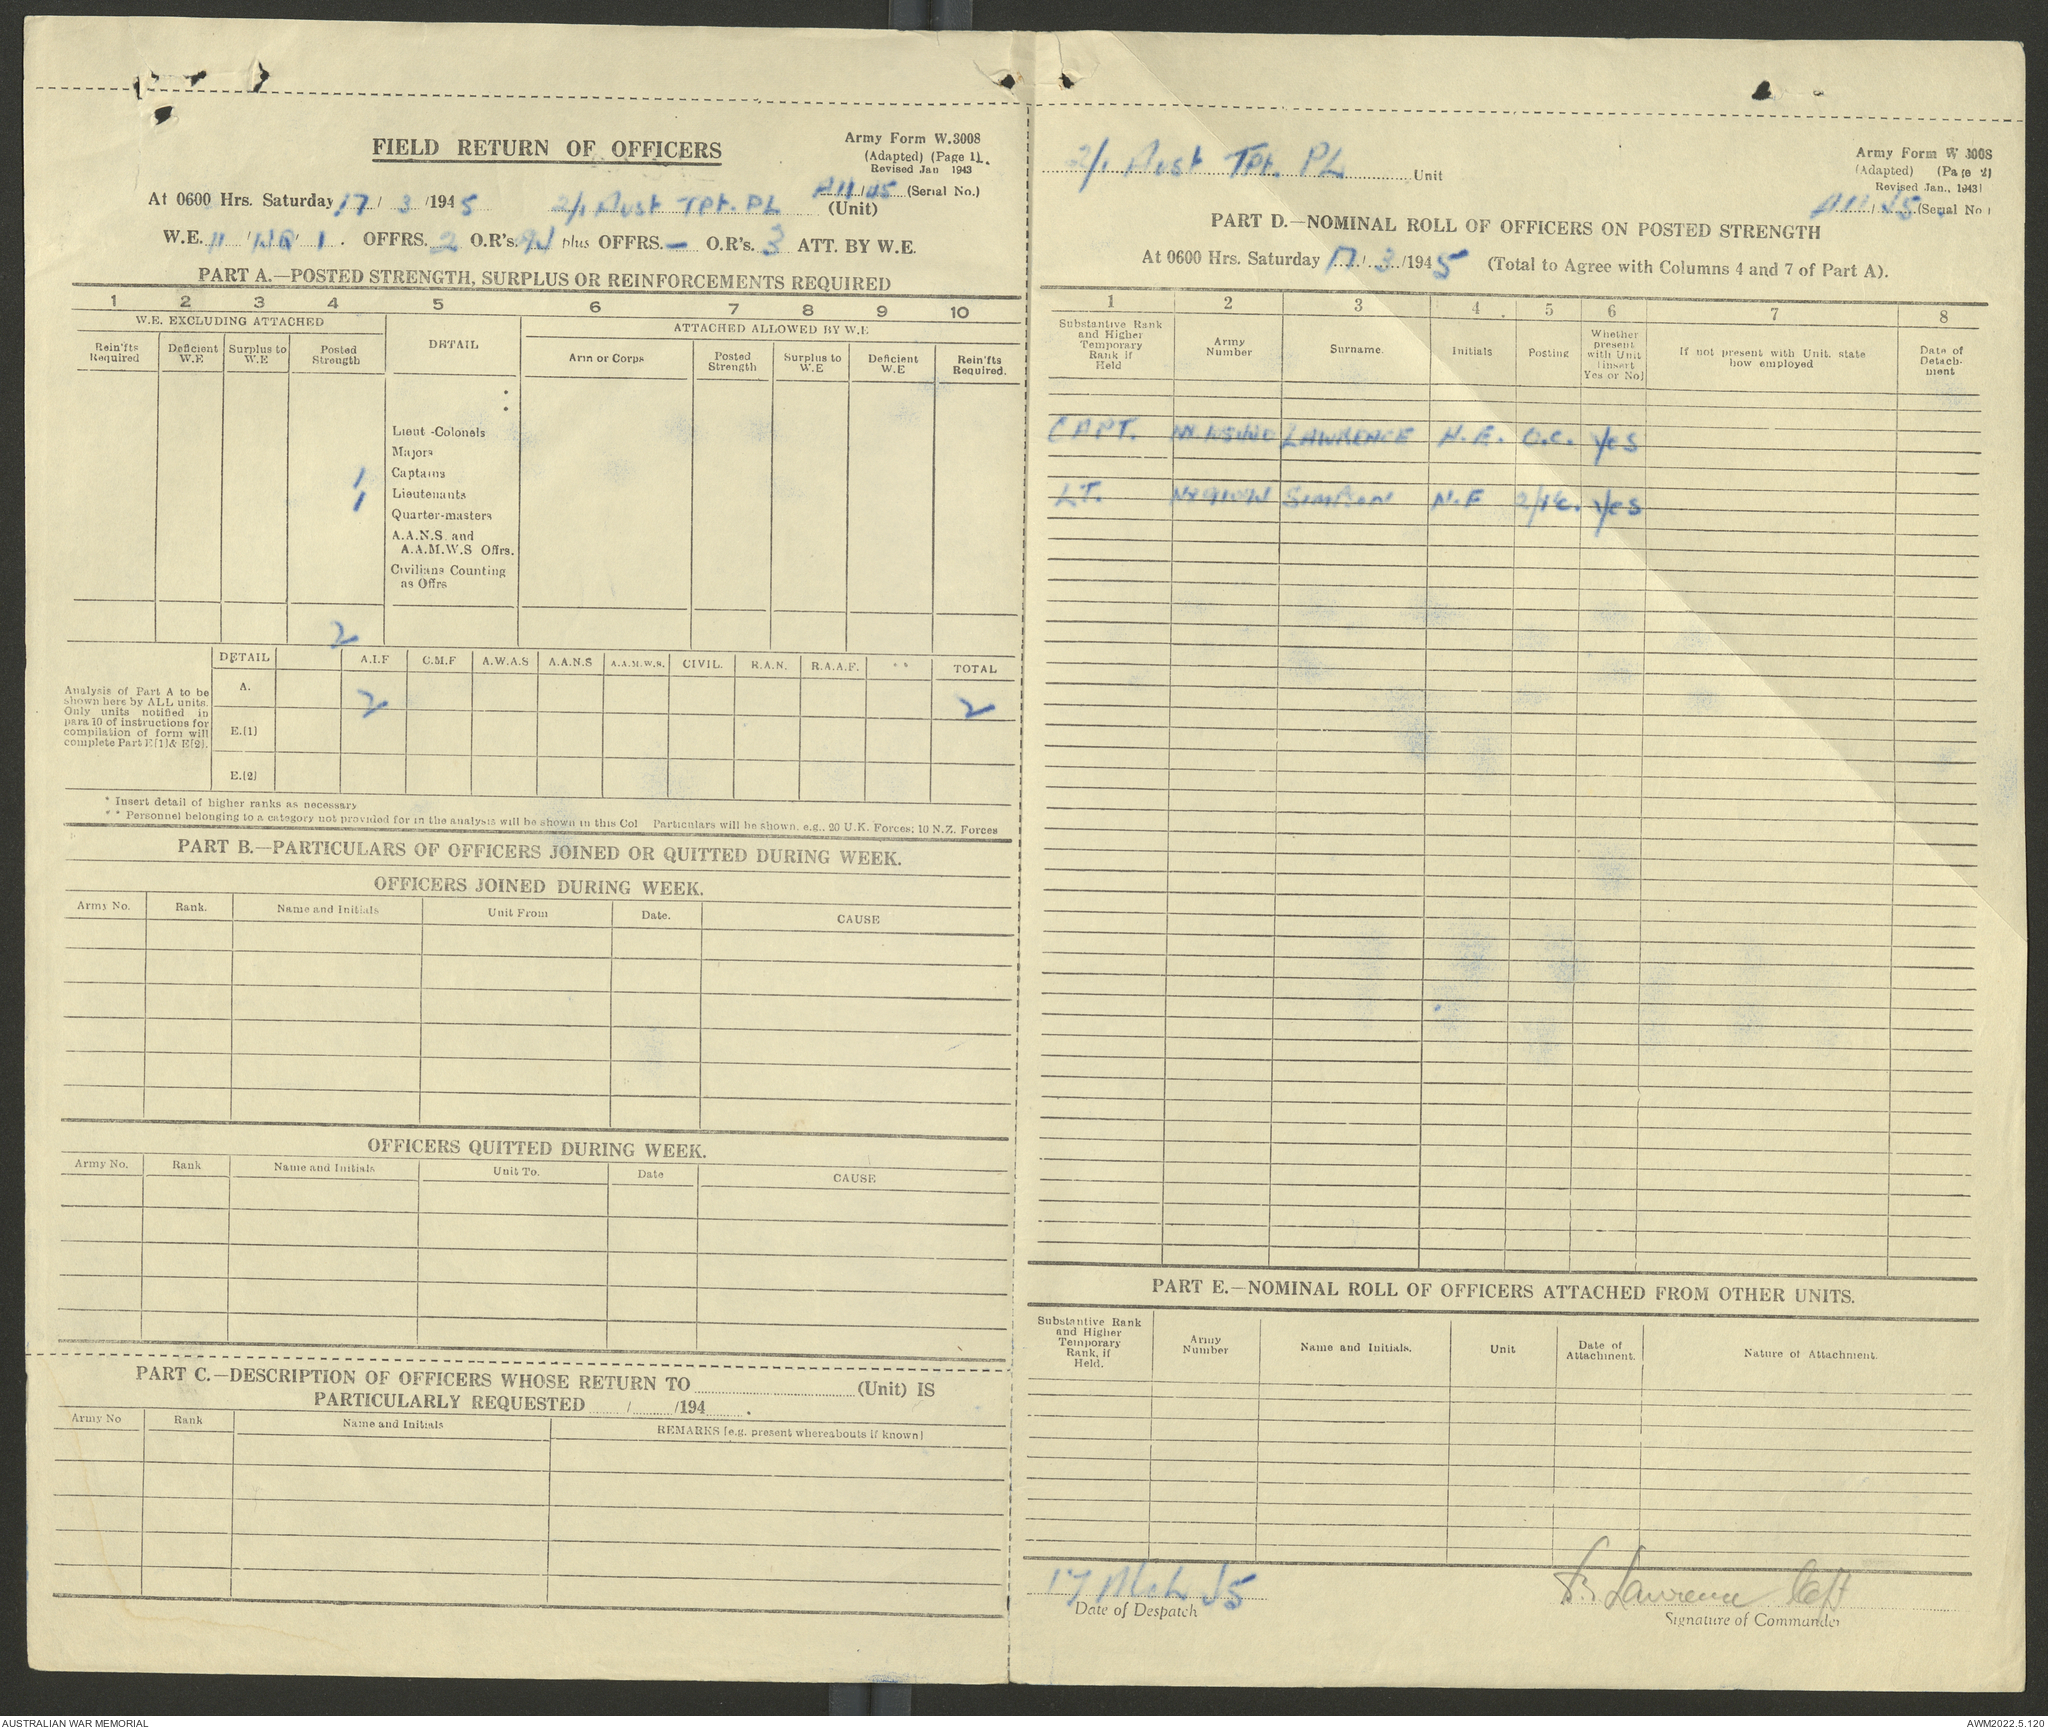 FIELD RETURN OF OFFICERS
Army Form W.3008
(Adapted) (Page 1).
Revised Jan 1943
At 0600 Hrs. Saturday 17/3/1945 2/1 Aust Tpt. PL (Unit) (Serial No.)
W.E. 11/ /1. OFFRS. 2 O.R's. plus OFFRS. - O.R's. 3 ATT. BY W.E.
PART A.—POSTED STRENGTH, SURPLUS OR REINFORCEMENTS REQUIRED
1 2 3 4 5 6 7 8 9 10
W.E. EXCLUDING ATTACHED DETAIL ATTACHED ALLOWED BY W.E
Rein'fts Required Deficient W.E Surplus to W.E Posted Strength Arm or Corps Posted Strength Surplus to W.E Deficient W.E Rein'fts Required.
Lieut -Colonels
Majors
1 Captains
1 Lieutenants
Quarter-masters
A.A.N.S. and
A.A.M.W.S Offrs.
Civilians Counting
as Offrs
2
DETAIL A.I.F C.M.F A.W.A.S A.A.N.S A.A.M.W.S. CIVIL. R.A.N. R.A.A.F. ** TOTAL
Analysis of Part A to be
shown here by ALL units.
Only units notified in
para 10 of instructions for
compilation of form will
complete Part E(1)& E(2).
A. 2 2
E.(1)
E.(2)
* Insert detail of higher ranks as necessary
** Personnel belonging to a category not provided for in the analysis will be shown in this Col Particulars will be shown, e.g., 20 U.K. Forces; 10 N.Z. Forces
PART B.—PARTICULARS OF OFFICERS JOINED OR QUITTED DURING WEEK.
OFFICERS JOINED DURING WEEK.
Army No. Rank. Name and Initials Unit From Date. CAUSE
OFFICERS QUITTED DURING WEEK.
Army No. Rank Name and Initials Unit To. Date CAUSE
PART C.—DESCRIPTION OF OFFICERS WHOSE RETURN TO (Unit) IS
PARTICULARLY REQUESTED / /194 .
Army No Rank Name and Initials REMARKS (e.g. present whereabouts if known)
2/1 Aust Tpt. PL Unit
Army Form W 3008
(Adapted) (Page 2)
Revised Jan., 1943)
(Serial No)
PART D.—NOMINAL ROLL OF OFFICERS ON POSTED STRENGTH
At 0600 Hrs. Saturday 17/3/1945 (Total to Agree with Columns 4 and 7 of Part A).
1 2 3 4 5 6 7 8
Substantive Rank and Higher Temporary Rank if Held Army Number Surname. Initials Posting Whether present with Unit (insert Yes or No) If not present with Unit, state how employed Date of Detach- ment
CAPT. LAWRENCE H.E. O.C. Yes
LT. SIMPSON N.F 2/IC. Yes
PART E.—NOMINAL ROLL OF OFFICERS ATTACHED FROM OTHER UNITS.
Substantive Rank and Higher Temporary Rank, if Held. Army Number Name and Initials. Unit Date of Attachment. Nature of Attachment.
17 Mch 45
Date of Despatch
Lawrence Capt
Signature of Commander
AUSTRALIAN WAR MEMORIAL
AWM2022.5.120